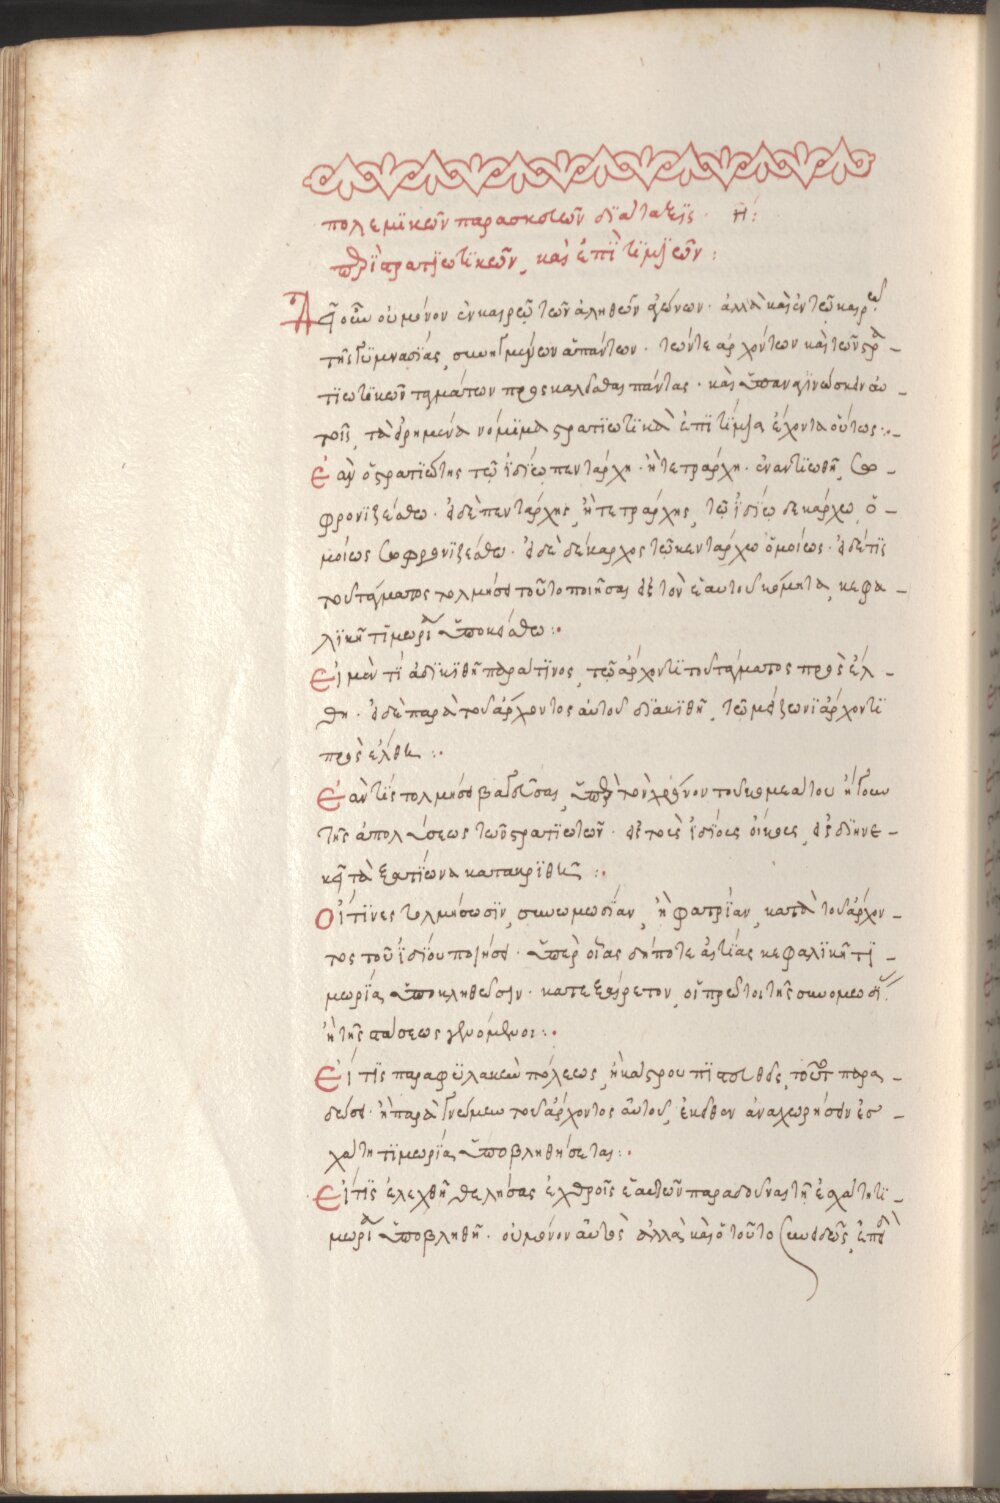 πολεμϊκῶν παρασκευῶν διάταξϊς. η΄:
περὶ στρατϊωτϊκῶν, καὶ ἐπϊτϊμΐων:
Δεῖ οὖν οὐ μόνον ἐν καιρῶ τῶν ἀληθῶν ἀγώνων· ἀλλὰ καὶ ἐν τῶ καιρῶ
τῆς γϋμνασΐας, συνηγμένων ἁπάντων· τῶν τε ἀρχόντων καὶ τῶν στρα-
τϊωτϊκῶν ταγμάτων προσκαλεῖσθαι πάντας· καὶ ὑπαναγϊνώσκειν αὐ-
τοῖς, τὰ εἰρημένα νόμϊμα στρατϊωτϊκὰ ἐπϊτίμϊα ἔχοντα οὕτως:-
Ἐὰν ὁ στρατϊώτης τῶ ἰδίω πεντάρχη· ἢ τετράρχη· ἐναντϊωθῆ, σω-
φρονϊζέσθω· εἰ δὲ πεντάρχης, ἢ τετράρχης, τῶ ἰδίω δεκάρχω, ὁ-
μοίως σωφρονϊζέσθω· εἰ δὲ δέκαρχος τῶ κεντάρχω ὁμοίως· εἰ δέ τϊς
τοῦ τάγματος τολμήσει τοῦτο ποιῆσαι εἰς τὸν ἑαυτοῦ κόμητα, κεφα-
λϊκῆ τϊμωρία ὑποκείσθω:·
Εἰ μέν τι ἀδϊκϊθῆ παρά τϊνος, τῶ ἄρχοντϊ τοῦ τάγματος προσέλ-
θη· εἰ δὲ παρὰ τοῦ ἄρχοντος αὐτοῦ ἀδϊκϊθῆ, τῶ μείζωνϊ ἄρχοντϊ
προσέλθη:·
Ἐάν τϊς τολμήσει βαγεῦσαι, ὑπὲρ τὸν χρόνον τοῦ κομεάτου ἤγουν
τῆς ἀπολύσεως τῶν στρατϊωτῶν· εἰς τοὺς ἰδΐους οἴκους, εἰς δϊηνε-
κῆ τὰ ξατϊῶνα κατακρϊθῆ:·
Οἵτϊνες τολμήσωσϊν, συνωμοσΐαν, ἢ φατρΐαν, κατὰ τοῦ ἄρχον-
τος τοῦ ἰδίου ποιῆσαι· ὑπὲρ οἵας δήποτε αἰτΐας κεφαλϊκῆ τϊ-
μωρΐα ὑποκληθῶσιν· κατεξαίρετον, οἱ πρῶτοι τῆς συνομωσΐας
ἢ τῆς στάσεως γενόμενοι:·
Εἴ τϊς παραφϋλακὴν πόλεως, ἢ κάστρου πϊστευθεὶς, τοῦτο παρα-
δώσει· ἢ παρὰ γνώμην τοῦ ἄρχοντος αὐτοῦ, ἐκεῖθεν ἀναχωρήσειεν ἐσ-
χάτη τϊμωρΐα ὑποβληθήσεται:·
Εἴ τϊς ἐλεχθῆ θελήσας ἐχθροῖς ἑαυτῶν παραδοῦναι τῆ ἐσχάτη τϊ-
μωρία ὑποβληθῆ· οὐ μόνον αὐτὸς ἀλλὰ καὶ ὁ τοῦτο συνειδὼς, ἐπειδὴ